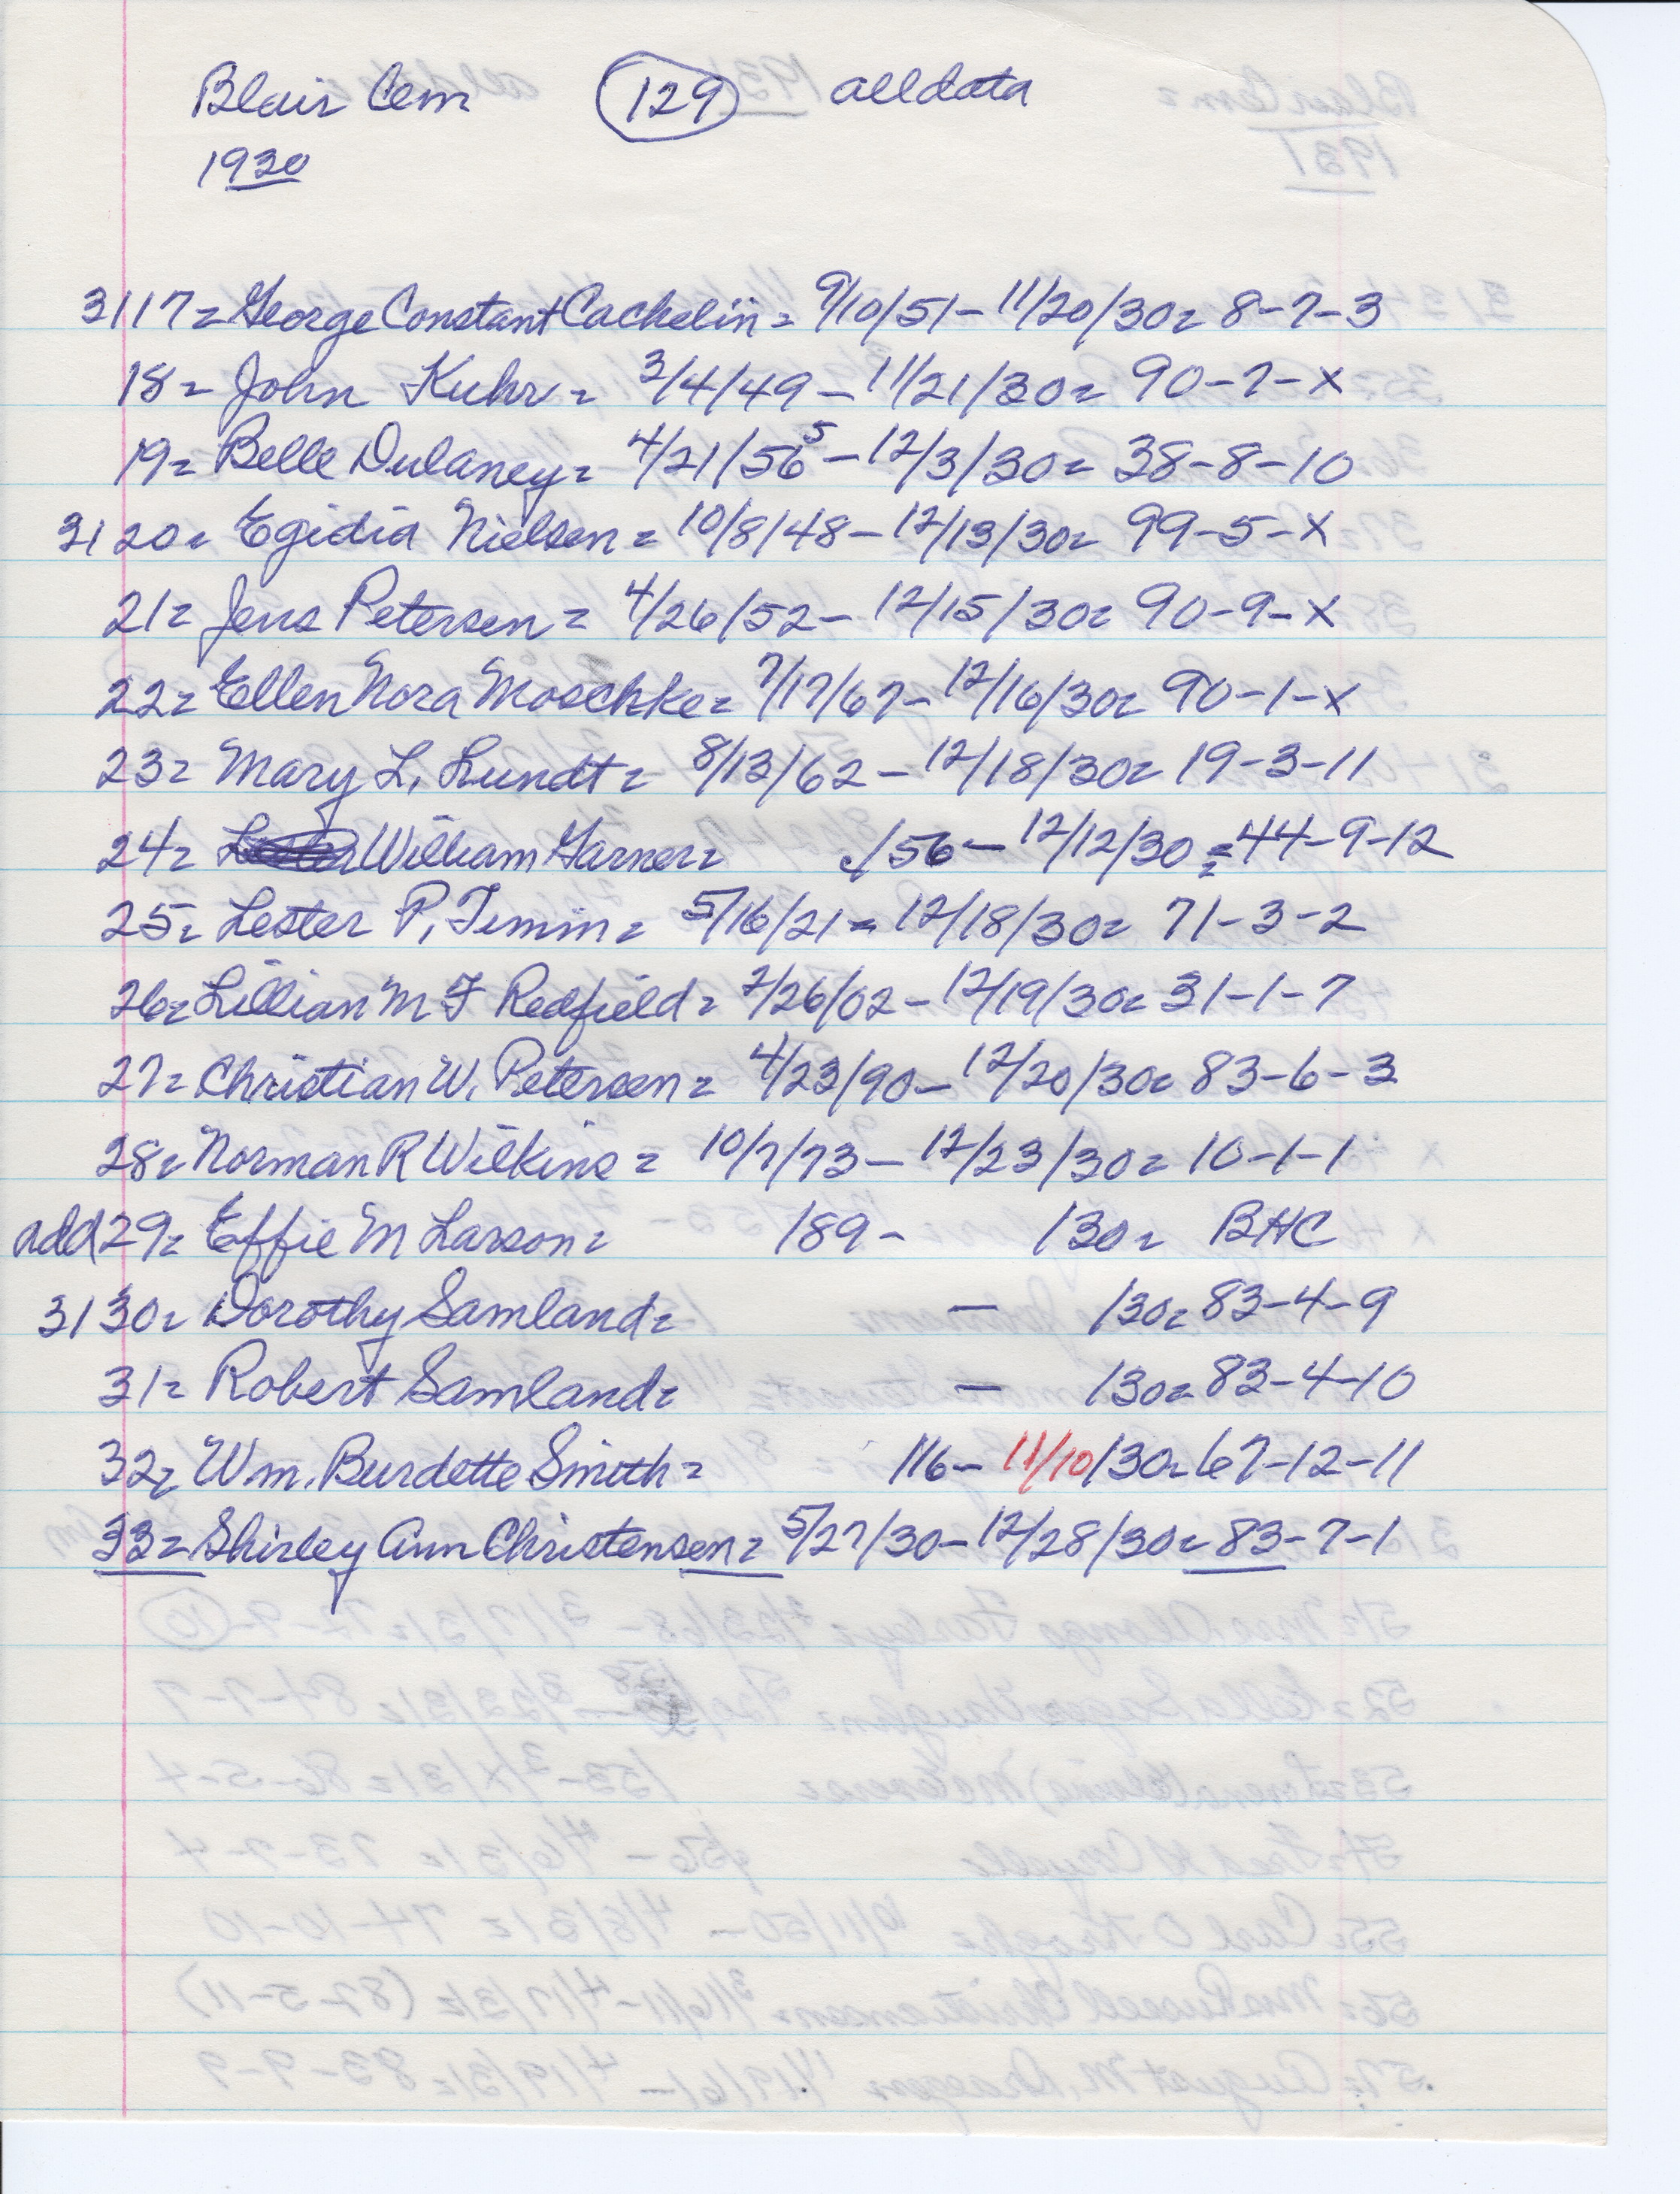 Blair Cem 129 alldata
1930
3117= George Constant Cachelin= 9/10/51-11/20/30= 8-7-3
18= John Kuhr= 3/4/49-11/21/30= 90-7-X
19= Belle Dulaney= 4/21/56 5-12/3/30= 38-8-10
3120= Egidia Nielsen= 10/8/48-12/13/30= 99-5-X
21= Jens Petersen= 4/26/52-12/15/30= 90-9-X
22= Ellen Nora Moschke= 7/17/67-12/16/30= 90-1-X
23= Mary L. Lundt= 8/13/62-12/18/30= 19-3-11
24= William Garner= /56-12/12/30= 44-9-12
25= Lester P. Temin= 5/16/21-12/18/30= 71-3-2
26= Lillian M F Redfield= 2/26/02-12/19/30= 31-1-7
27= Christian W. Petersen= 4/23/90-12/20/30= 83-6-3
28= Norman R Wilkins= 10/7/73-12/23/30= 10-1-1
add 29= Effie M Larson= /89- /30= BHC
3130= Dorothy Samland= - /30= 83-4-9
31= Robert Samland= - /30= 83-4-10
32= Wm. Burdette Smith= /16-11/10/30= 67-12-11
33= Shirley Ann Christensen= 5/27/30-12/28/30= 83-7-1